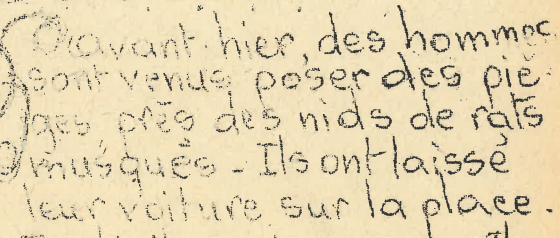 avant-hier, des hommes
sont venus poser des piè-
ges près des nids de rats
musqués - Ils ont laissé
leur voiture sur la place.